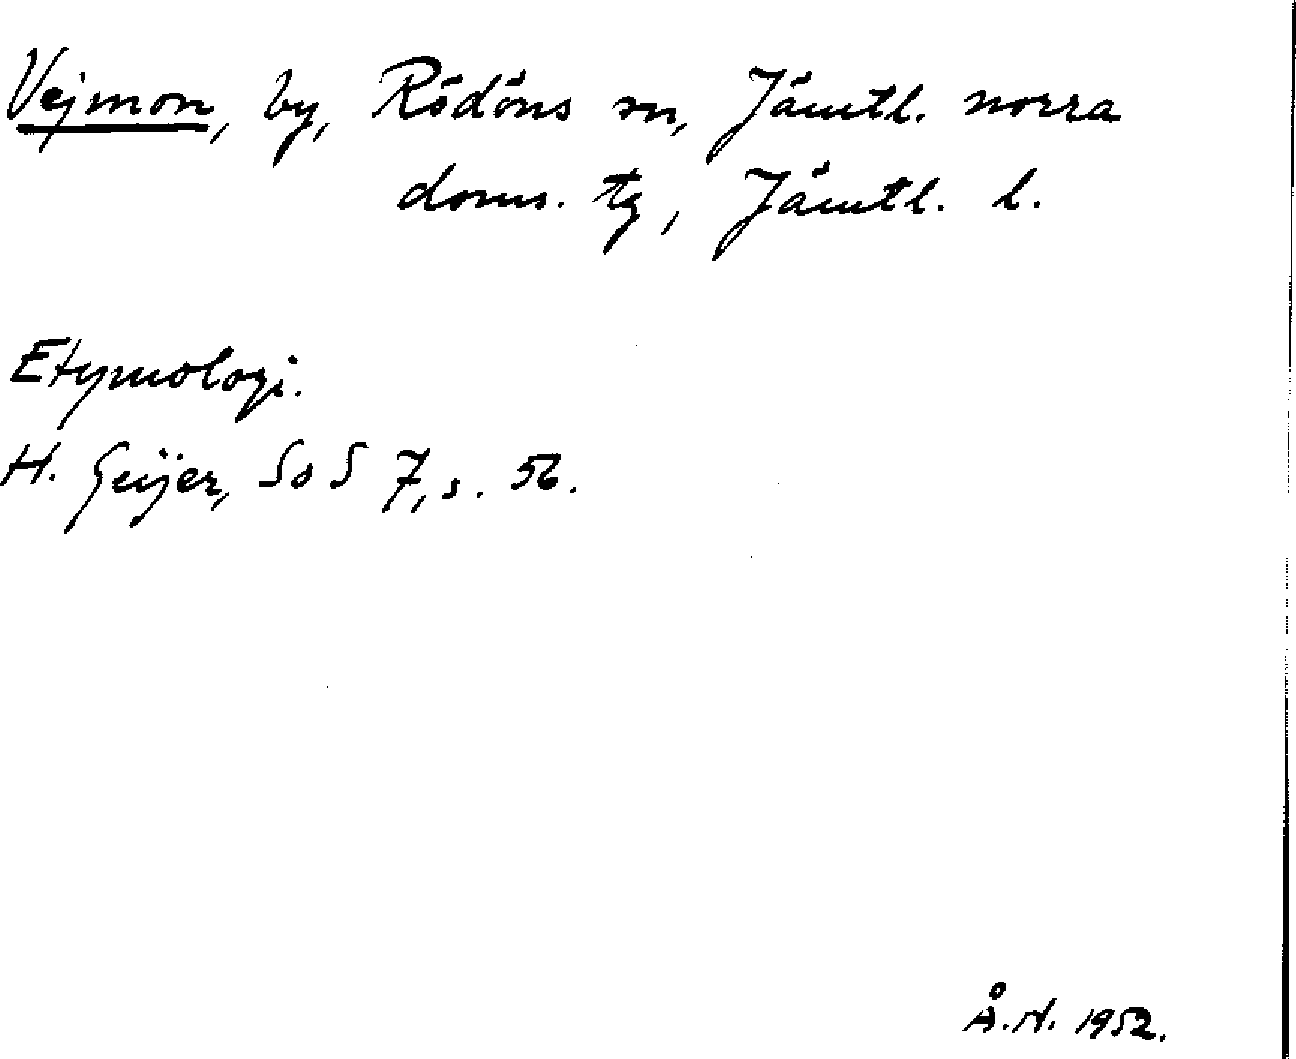 Vejmon, by, Rödöns sn, Jämtl. norra
doms. tg, Jämtl. l.
Etymologi.
H. Geijer, SoS 7, s. 56.
Å.N. 1952.